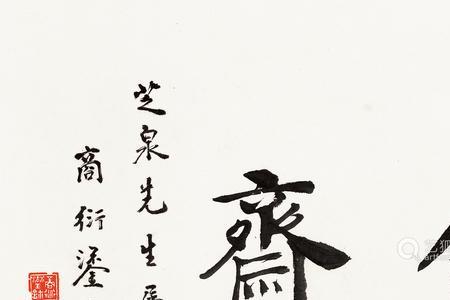 齋
芝泉先生
商衍鎏